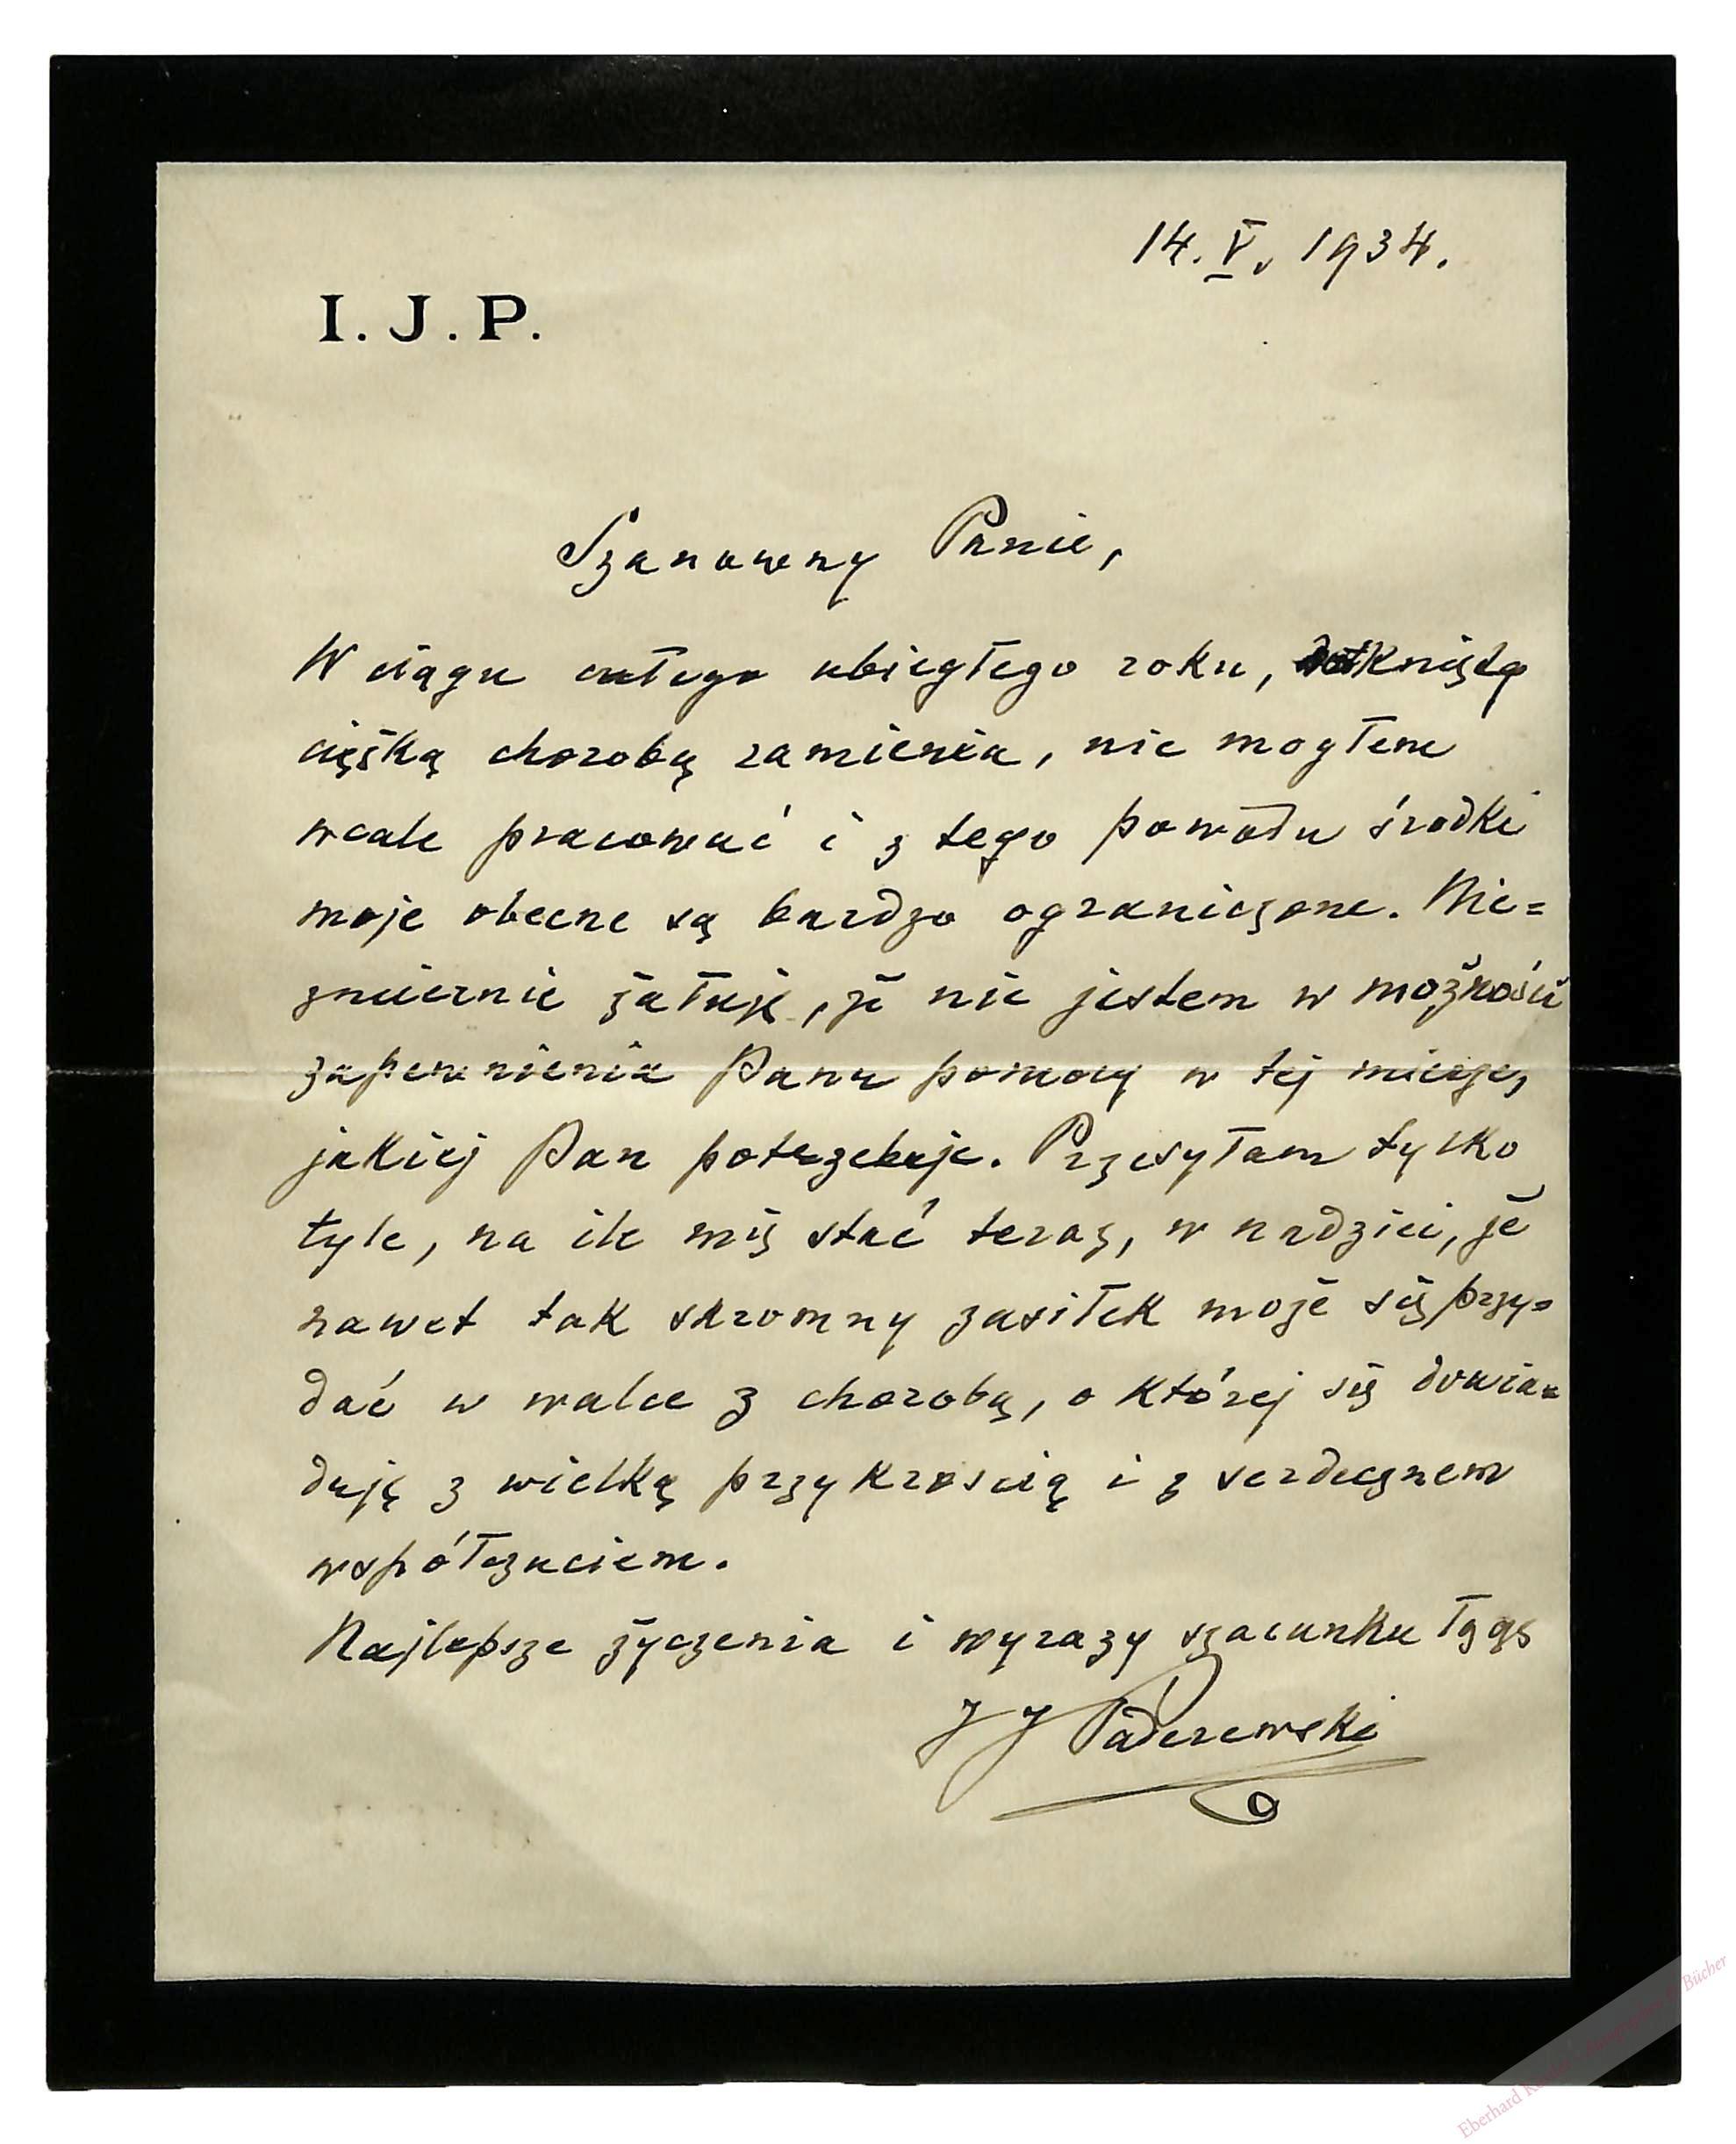 14. V. 1934.
I. J. P.
Szanowny Panie,
W ciągu całego ubiegłego roku, dotknięty
ciężką chorobą ramienia, nie mogłem
wcale pracować i z tego powodu środki
moje obecne są bardzo ograniczone. Nie=
zmiernie żałuję, że nie jestem w możności
zapewnienia Panu pomocy w tej mierze,
jakiej Pan potrzebuje. Przesyłam tylko
tyle, na ile mię stać teraz, w nadziei, że
nawet tak skromny zasiłek może się przy=
dać w walce z chorobą, o której się dowia=
duję z wielką przykrością i z serdecznem
współczuciem.
Najlepsze życzenia i wyrazy szacunku łączę
I J Paderewski
Eberhard Bücher